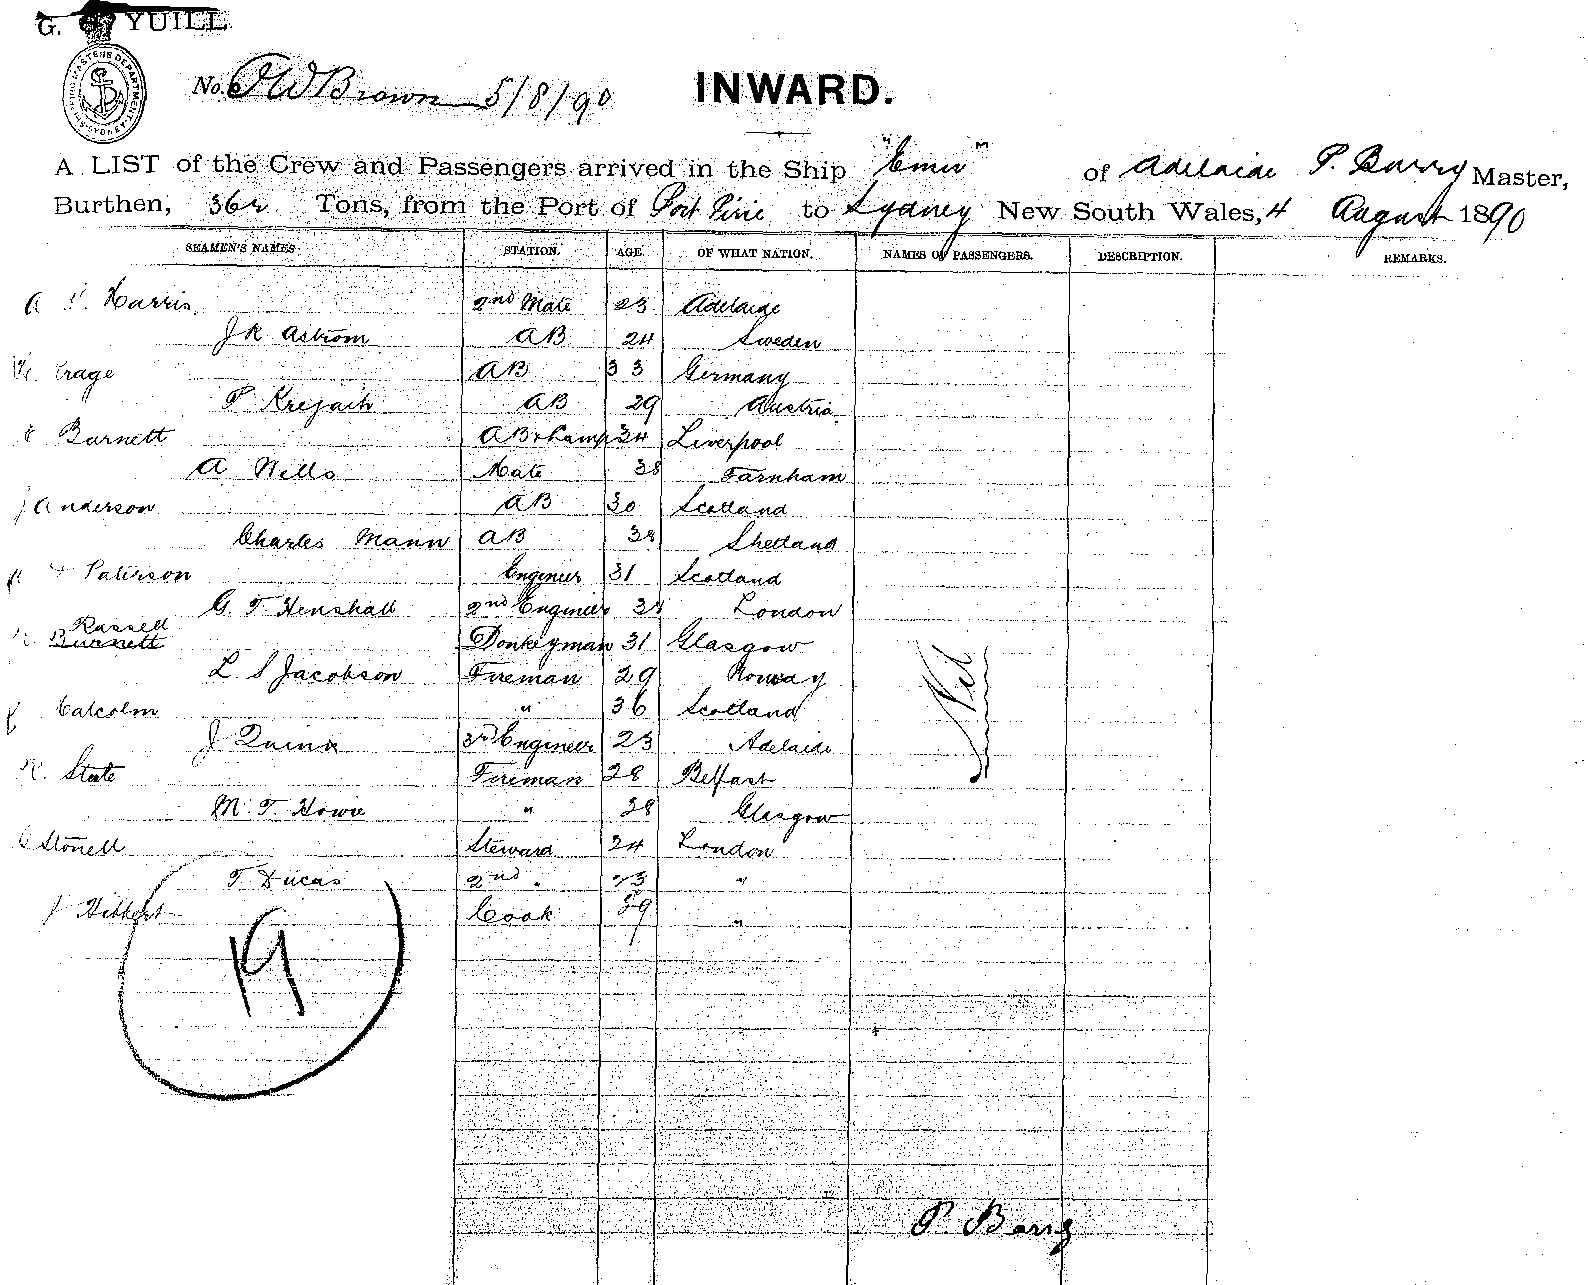 G. YUILL
No. P W Brown 5/8/90 INWARD.
A LIST of the Crew and Passengers arrived in the Ship "Emu" of Adelaide P. Barry Master,
Burthen, 362 Tons, from the Port of Port Pirie to Sydney New South Wales, 4 August 1890
SEAMEN'S NAMES STATION. AGE. OF WHAT NATION. NAMES OF PASSENGERS. DESCRIPTION. REMARKS.
A Harris 2nd Mate 23 Adelaide
J R Astrom AB 24 Sweden
AB 33 Germany
P AB 29 Austria
Barnett AB 34 Liverpool
A Wells Mate 38 Farnham
J Anderson AB 30 Scotland
Charles Mann AB 38 Shetland
Paterson Engineer 31 Scotland
G. T. Henshall 2nd Engineer 38 London
Russell
Burnett Donkeyman 31 Glasgow
L S Jacobson Fireman 29 Norway
Malcolm " 36 Scotland
J Quinn 3rd Engineer 23 Adelaide
R. Fireman 28 Belfast
M. T. Howie " 28 Glasgow
Stonell Steward 24 London
T Lucas 2nd " 23 "
J Hibbert Cook 59 "
Nil
19
P. Barry